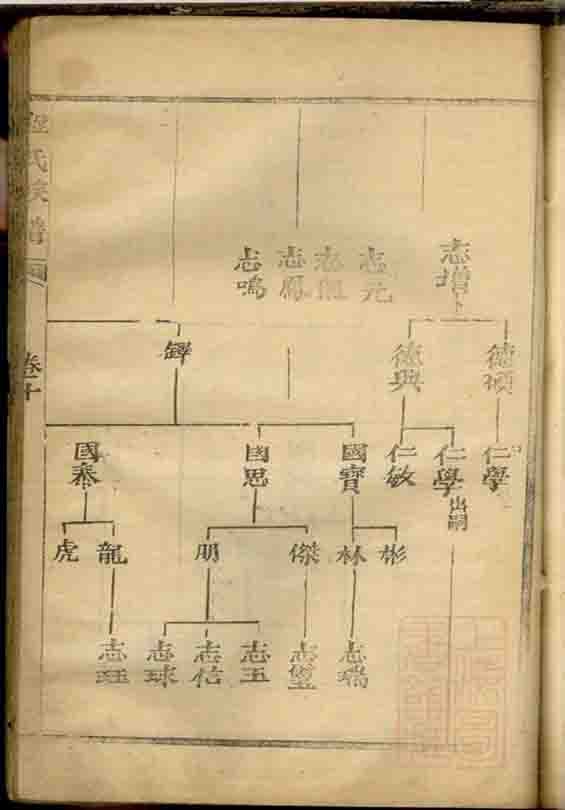 志增卜
志元
志鳳
志鳴
德順
德興
鐸
仁學
仁學出嗣
仁敏
國寶
國思
國泰
彬
林
傑
朋
龍
虎
志瑞
志璧
志玉
志信
志球
志玨
氏族譜
卷十